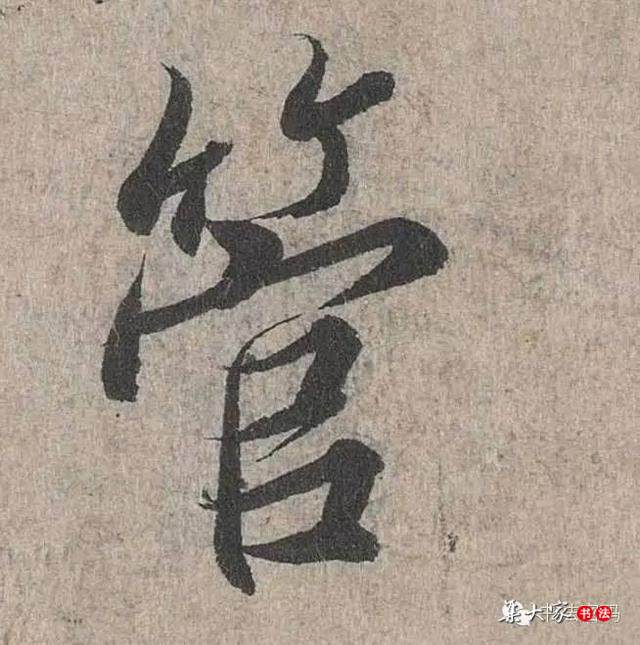 管
集大家书法